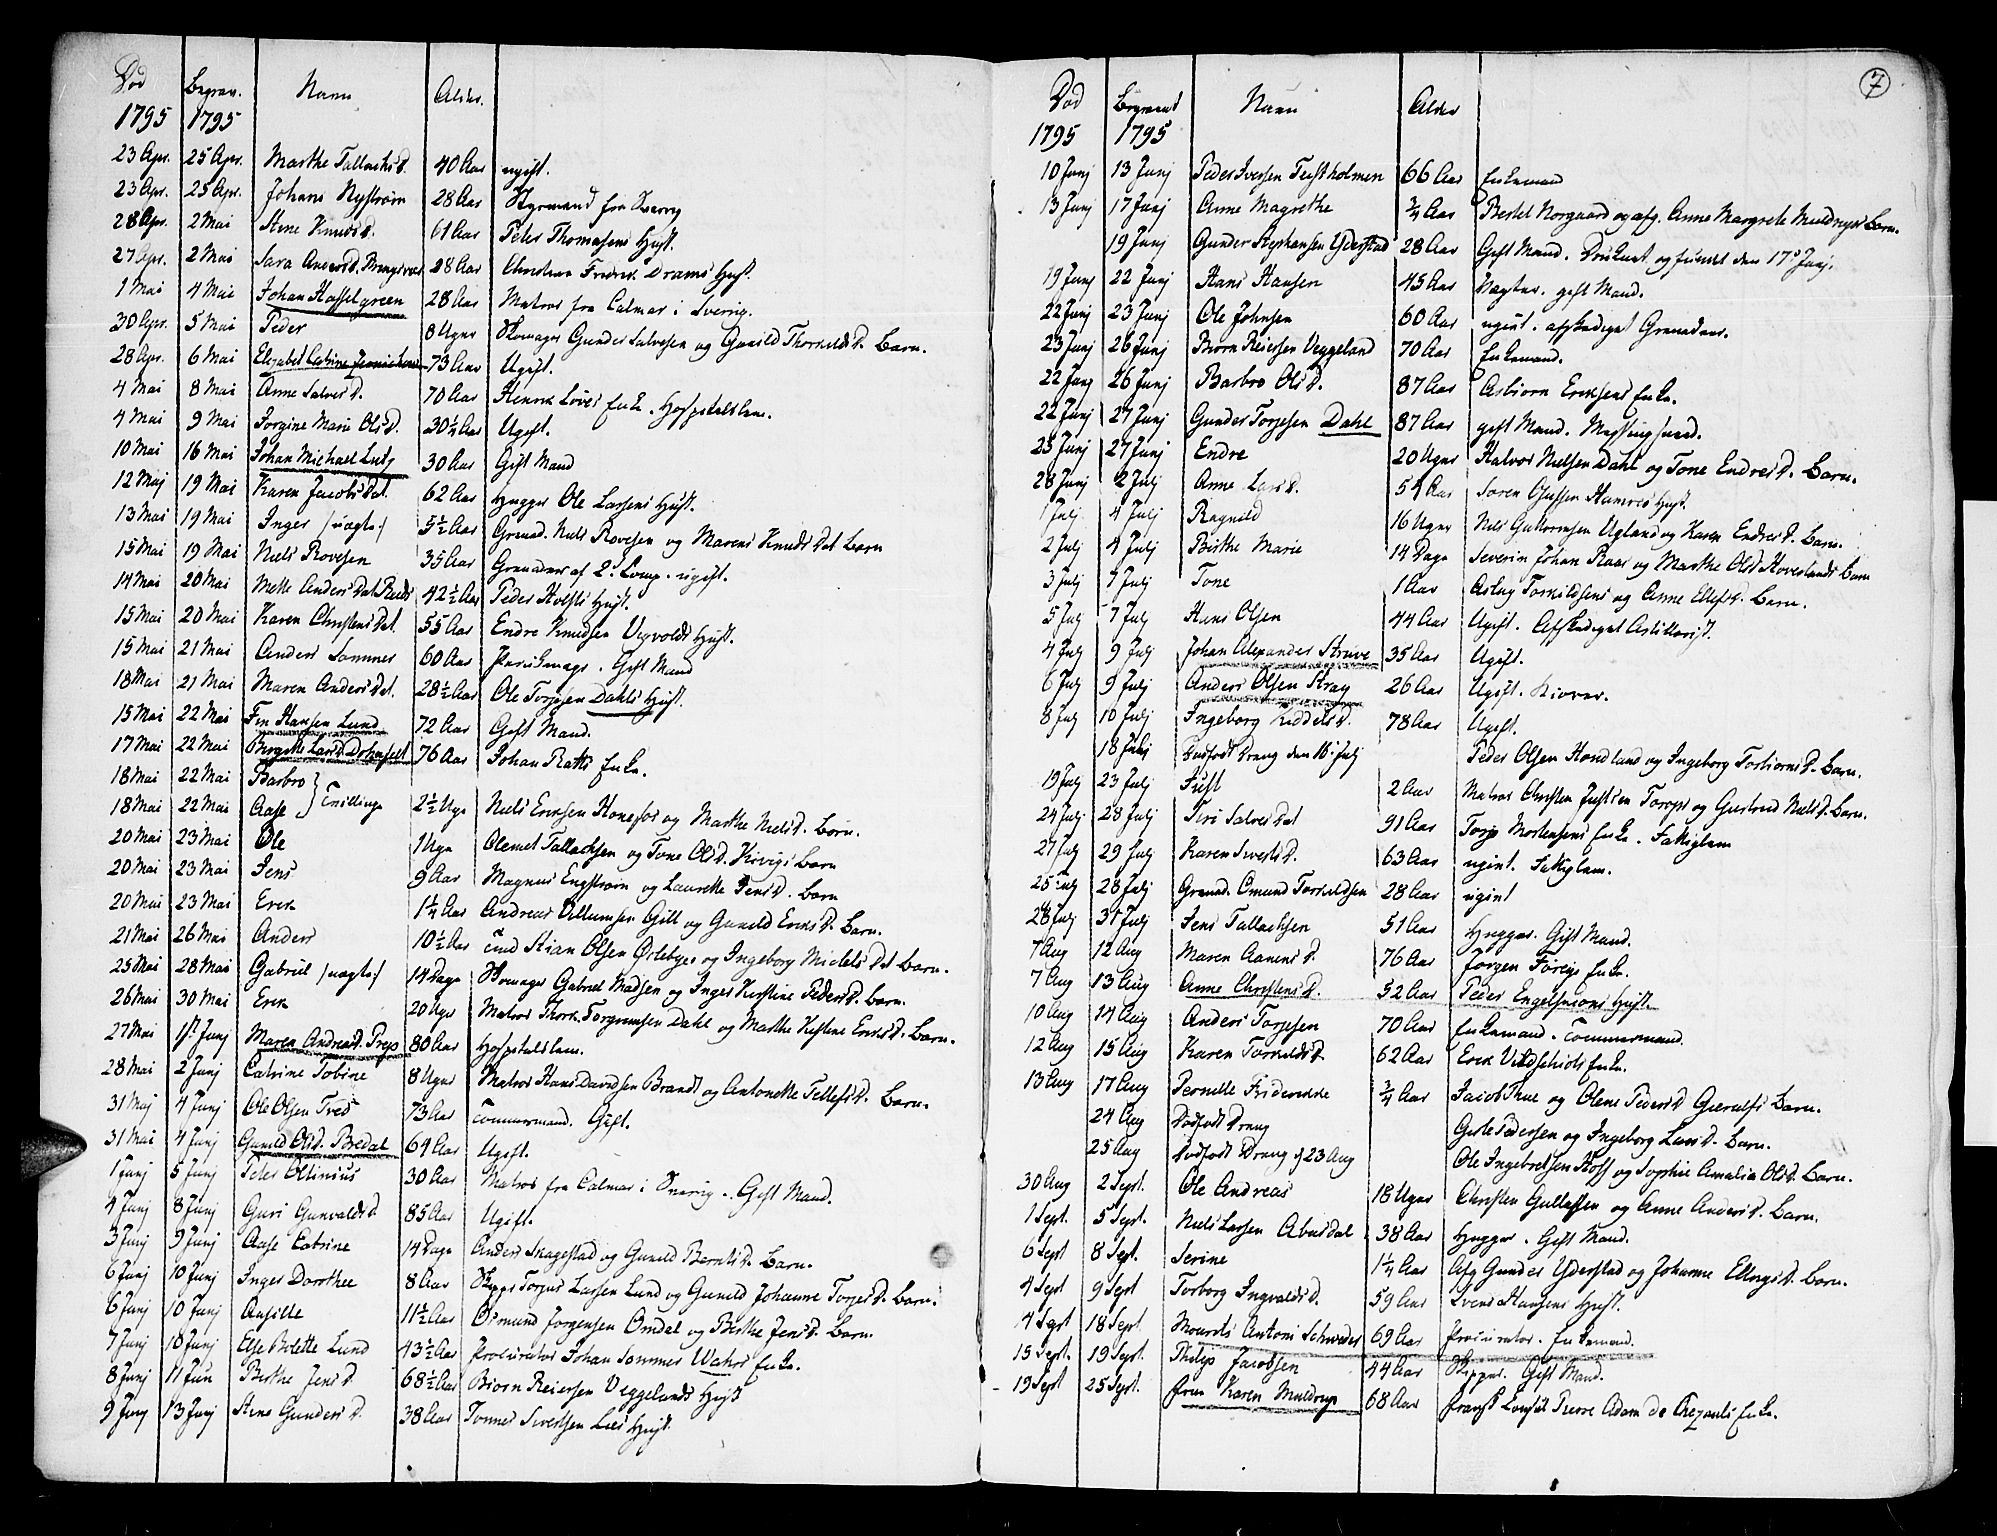 Død Begrav. Navn Alder.
1795 1795
23 Apr. 25 Apr. Marthe Tallachsd. 40 Aar ugift.
23 Apr. 25 Apr. Johans Nystrøm 28 Aar Styrmand fra Sverig
28 Apr. 2 Mai Anne Knudsd. 61 Aar Peter Thomasens Hust.
27 Apr. 2 Mai Sara Andersd. 28 Aar Christian Fredrik Drams Hust.
1 Mai 4 Mai Johan Hasselgreen 28 Aar Matros fra Calmar i Sverrig.
30 Apr. 5 Mai Peder 8 Uger Skomager Gunder Salvesen og Gunild Thorkildsd. Barn.
28 Apr. 6 Mai Elisabet Catrine 73 Aar Ugift.
4 Mai 8 Mai Anne Salvesd. 70 Aar Henrik Loves Enke. Hospitalslem.
4 Mai 9 Mai Jorgine Marie Olsd. 30½ Aar Ugift.
10 Mai 16 Mai Johan Michael Lutz 30 Aar Gift Mand
12 Maj 19 Mai Karen Jacobsdat. 62 Aar Hugger Ole Larsens Hust.
13 Mai 19 Mai Inger /uægte/ 5½ Aar Grenad. Niels Rovesen og Marens Knuds Dat Barn
15 Mai 19 Mai Niels Rovesen 35 Aar Grenader af 2. Comp. ugift.
14 Mai 20 Mai Mette Anders Dat 42½ Aar Peder Holsts Hust.
15 Mai 20 Mai Karen Christens Dat. 55 Aar Endre Knudsen Vegvolds Hust.
15 Mai 21 Mai Anders Sommer 60 Aar Parikmager. Gift Mand
18 Mai 21 Mai Maren Anders Dat. 28½ Aar Ole Torjesen Dahls Hust.
15 Mai 22 Mai Fin Hansen Lund 72 Aar Gift Mand.
17 Mai 22 Mai Birgitte Larsd. 76 Aar Johan Raths Enke.
18 Mai 22 Mai Barbro } Tvillinge
18 Mai 22 Mai Aase 2½ Uge Niels Eriksen Honefos og Marthe Nielsd. Børn.
20 Mai 23 Mai Ole 1 Uge Olemet Tallachsen og Tone Olsd. Kovigs Barn
20 Mai 23 Mai Jens 9 Aar Magnus Engstrøm og Laurette Jensd. Barn
20 Mai 23 Mai Erik 1¼ Aar Andreas Villumsen Gill og Gunild Eriksd. Barn.
21 Mai 26 Mai Anders 10½ Aar Stian Olsen Ørebye og Ingeborg Michels Dat Barn.
25 Mai 28 Mai Gabriel /uægte/ 14 Dage Skomager Gabriel Madsen og Inger Kirstine Pedersd. Barn.
26 Mai 30 Mai Erik 20 Uger Matros Thork. Torgrimsen Dahl og Marthe Kirstine Eriksd. Barn.
27 Mai 1st Junj Maren Andreasd. Preys 80 Aar Hospitalslem.
28 Mai 2 Junj Catrine Tobine 8 Uger Matros Hans Davidsen Brandt og Antonette Tellefsd. Barn.
31 Maj 4 Junj Ole Olsen Tved 73 Aar Tømmermand. Gift.
31 Mai 4 Junj Gunild Olsd. Bredal 64 Aar Ugift.
1 Junj 5 Junj Peter Oltinius 30 Aar Matros fra Calmar i Sverig. Gift Mand.
4 Junj 8 Junj Guri Gunvaldsd 85 Aar Ugift.
3 Junj 9 Junj Aase Catrine 14 Dage Anders Skagestad og Gunild Berntsd. Barn.
6 Junj 10 Junj Inger Dorothee 8 Aar Skipp. Torjus Larsen Lund og Gunild Johanne Torjesd. Barn.
6 Junj 10 Junj Ansille 11½ Aar Osmund Jorgensen Omdal og Berthe Jensd. Barn.
7 Junj 10 Junj Else Bolette Lund 43½ Aar Procurator Johan Sommer Wahrs Enke.
8 Junj 11 Jun Berthe Jensd. 68½ Aar Biorn Reiersen Veggelands Hust
9 Junj 13 Junj Anne Gundersd. 38 Aar Tønnes Sivertsen Lies Hust.
Død Begravet Navn Alder
7
1795 1795
10 Junj 13 Junj Peder Iversen Tejstholmen 66 Aar Enkemand
13 Junj 17 Junj Anne Magrethe ¾ Aar Bertel Norgaard og afg. Anne Margrete Muldrups Barn.
19 Junj Gunder Stephansen Yderstad 28 Aar Gift Mand. Druknet og fundet den 17. Junj.
19 Junj 22 Junj Hans Hansen 45 Aar Vægter. gift Mand.
22 Junj 23 Junj Ole Johnsen 60 Aar ugivt. afskediget Grenader.
23 Junj 26 Junj Biorn Reiersen Veggeland 70 Aar Enkemand.
22 Junj 26 Junj Barbro Olsd. 87 Aar Asbiorn Eriksens Enke.
22 Junj 27 Junj Gunder Torjesen Dahl 87 Aar gift Mand.
25 Junj 27 Junj Endre 20 Uger Halvor Nielsen Dahl og Tone Endresd. Barn.
28 Junj 2 Julj Anne Larsd. 54 Aar Soren Hamres Hust.
1 Julj 4 Julj Ragnild 16 Uger Niels Guttormsen Ugland og Karen Endresd. Barn.
2 Julj 4 Julj Birthe Marie 14 Dage Severin Johan Raar og Marthe Olsd. Hovelands Barn
3 Julj 7 Julj Tone 1 Aar Aslag Torkildsens og Anne Ellefsd. Barn.
5 Julj 7 Julj Hans Olsen 44 Aar Ugift. Afskediget Artillerist.
4 Julj 9 Julj Johan Alexander Struve 35 Aar Ugift.
6 Julj 9 Julj Anders Olsen Stray 26 Aar Ugift.
8 Julj 10 Julj Ingeborg Kiddelsd. 78 Aar Ugift.
18 Julj Dødfødt Dreng den 16. Julj Peder Olsen Hondland og Ingeborg Torbiorns D. Barn.
19 Julj 23 Julj Just 2 Aar Matros Christen Justsen Torops og Giertrud Nielsd. Barn.
24 Julj 28 Julj Siri Salves Dat 91 Aar Torje Mortensens Enke. Fattiglem
27 Julj 29 Julj Karen Sivertsd. 63 Aar ugivt. Fattiglem.
25 Julj 28 Julj Grenad. Omund Torkildsen 28 Aar ugivt
28 Julj 31 Julj Jens Tallachsen 51 Aar Hugger. Gift Mand.
7 Aug 12 Aug Maren Aanensd. 76 Aar Jørgen Foreys Enke.
7 Aug 13 Aug Anne Christensd. 52 Aar Peder Engelsmions Hust.
10 Aug 14 Aug Anders Torjesen 70 Aar Enkemand. Tømmermand.
12 Aug 15 Aug Karen Torkildsd. 62 Aar Erik Vildschiøts Enke.
13 Aug 17 Aug Pernille Friderikke ¾ Aar Jacob Thue og Olene Pedersd. Gierulfs Barn.
24 Aug Dødfødt Dreng Giste Pedersen og Ingeborg Larsd. Barn.
25 Aug Dødfødt Dreng d 23 Aug Ole Ingebretsen Hoff og Sophie Amalia Olsd. Barn.
30 Aug 2 Sept. Ole Andreas 18 Uger Christen Gullassen og Anne Andersd. Barn.
1 Sept. 5 Sept. Niels Larsen Aburdal 38 Aar Hugger. Gift Mand.
6 Sept 8 Sept. Serine 1¼ Aar Afg Gunder Yderstad og Johanne Ellingsd. Barn.
4 Sept 9 Sept Torborg Ingvaldsd. 59 Aar Svens Hansens Hust.
14 Sept 18 Sept Mourits Antoni Schweder 69 Aar Procurator. Enkemand.
15 Sept. 19 Sept. Philip Jacobsen 44 Aar Skipper. Gift Mand.
19 Sept 25 Sept. Frue Karen Muldrup 68 Aar Fransk Consül Pierre Adam de Chezauls Enke.